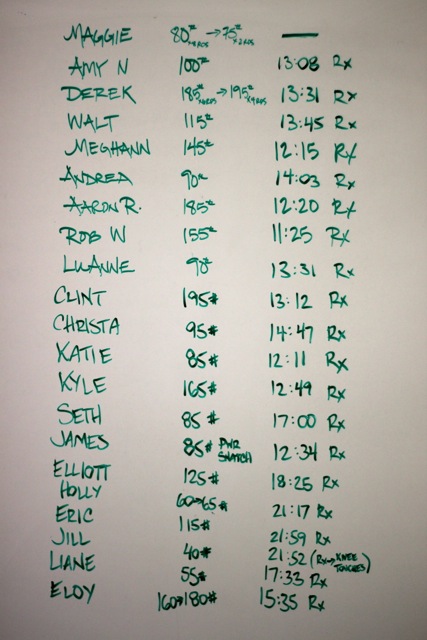 MAGGIE 80# x4RDS → 75# x2RDS —
AMY N 100# 13:08 Rx
DEREK 185# → 195# 13:31 Rx
WALT 115# 13:45 Rx
MEGHANN 145# 12:15 Rx
ANDREA 90# 14:03 Rx
AARON R. 185# 12:20 Rx
ROB W 155# 11:25 Rx
LUANNE 90# 13:31 Rx
CLINT 195# 13:12 Rx
CHRISTA 95# 14:47 Rx
KATIE 85# 12:11 Rx
KYLE 165# 12:49 Rx
SETH 85# 17:00 Rx
JAMES 85# PWR SNATCH 12:34 Rx
ELLIOTT 125# 18:25 Rx
HOLLY 60→65# 21:17 Rx
ERIC 115# 21:59 Rx
JILL 40# 21:52 (Rx→KNEE TOUCHES)
LIANE 55# 17:33 Rx
ELOY 160→180# 15:35 Rx